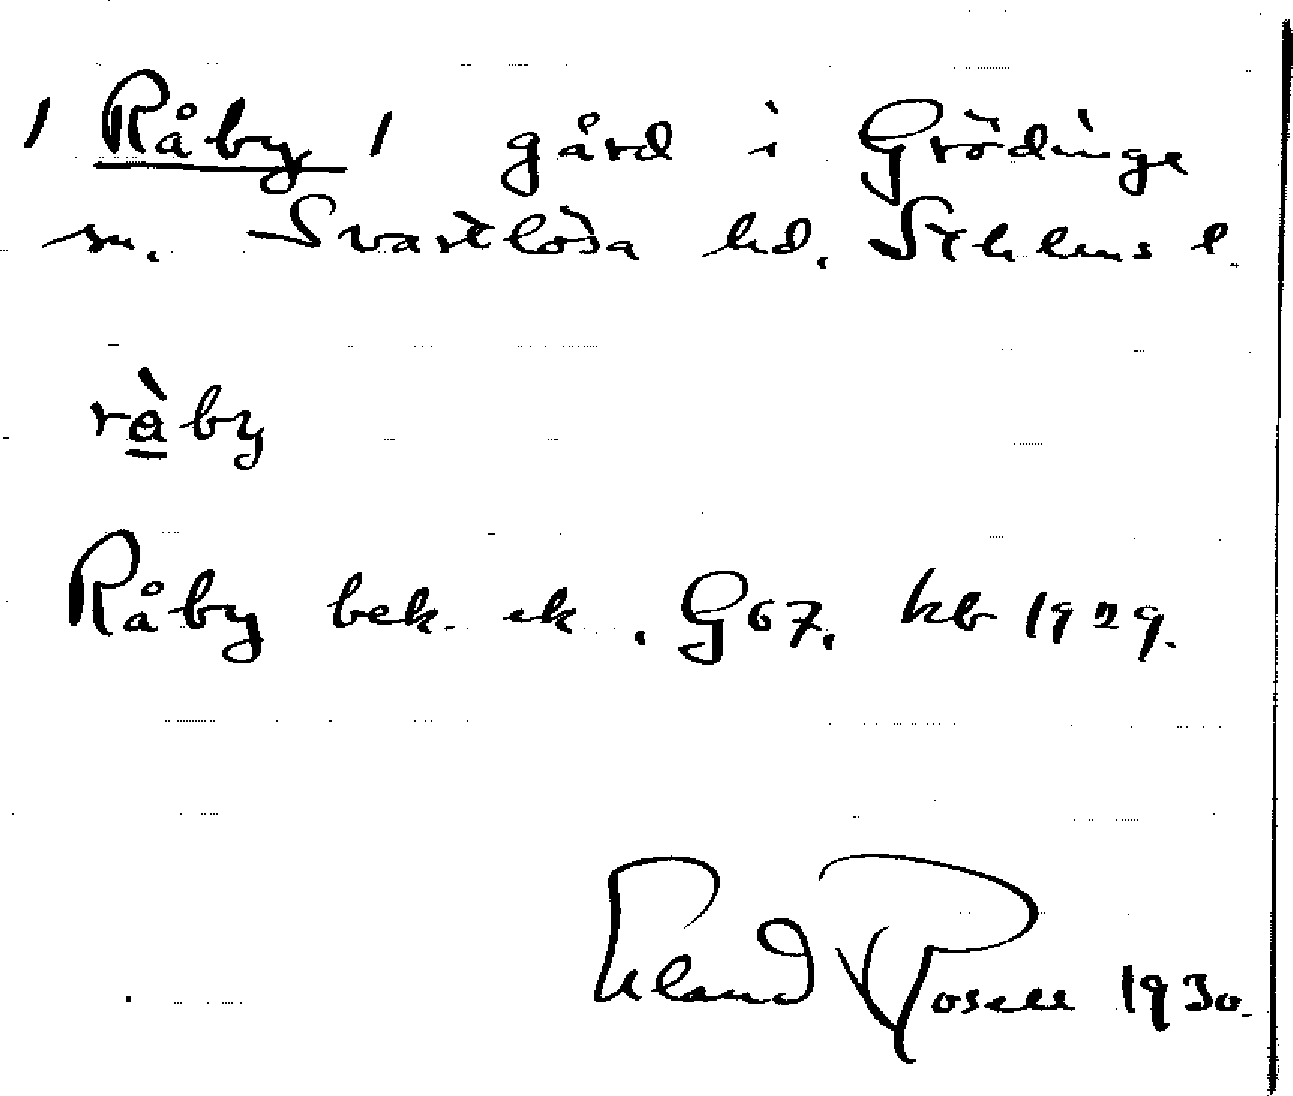 / Råby / gård i Grödinge
sn. Svartlösa hd. Sthlms l.
rå̀by
Råby bek. ek. G67. hb 1929.
Erland Rosell 1930.